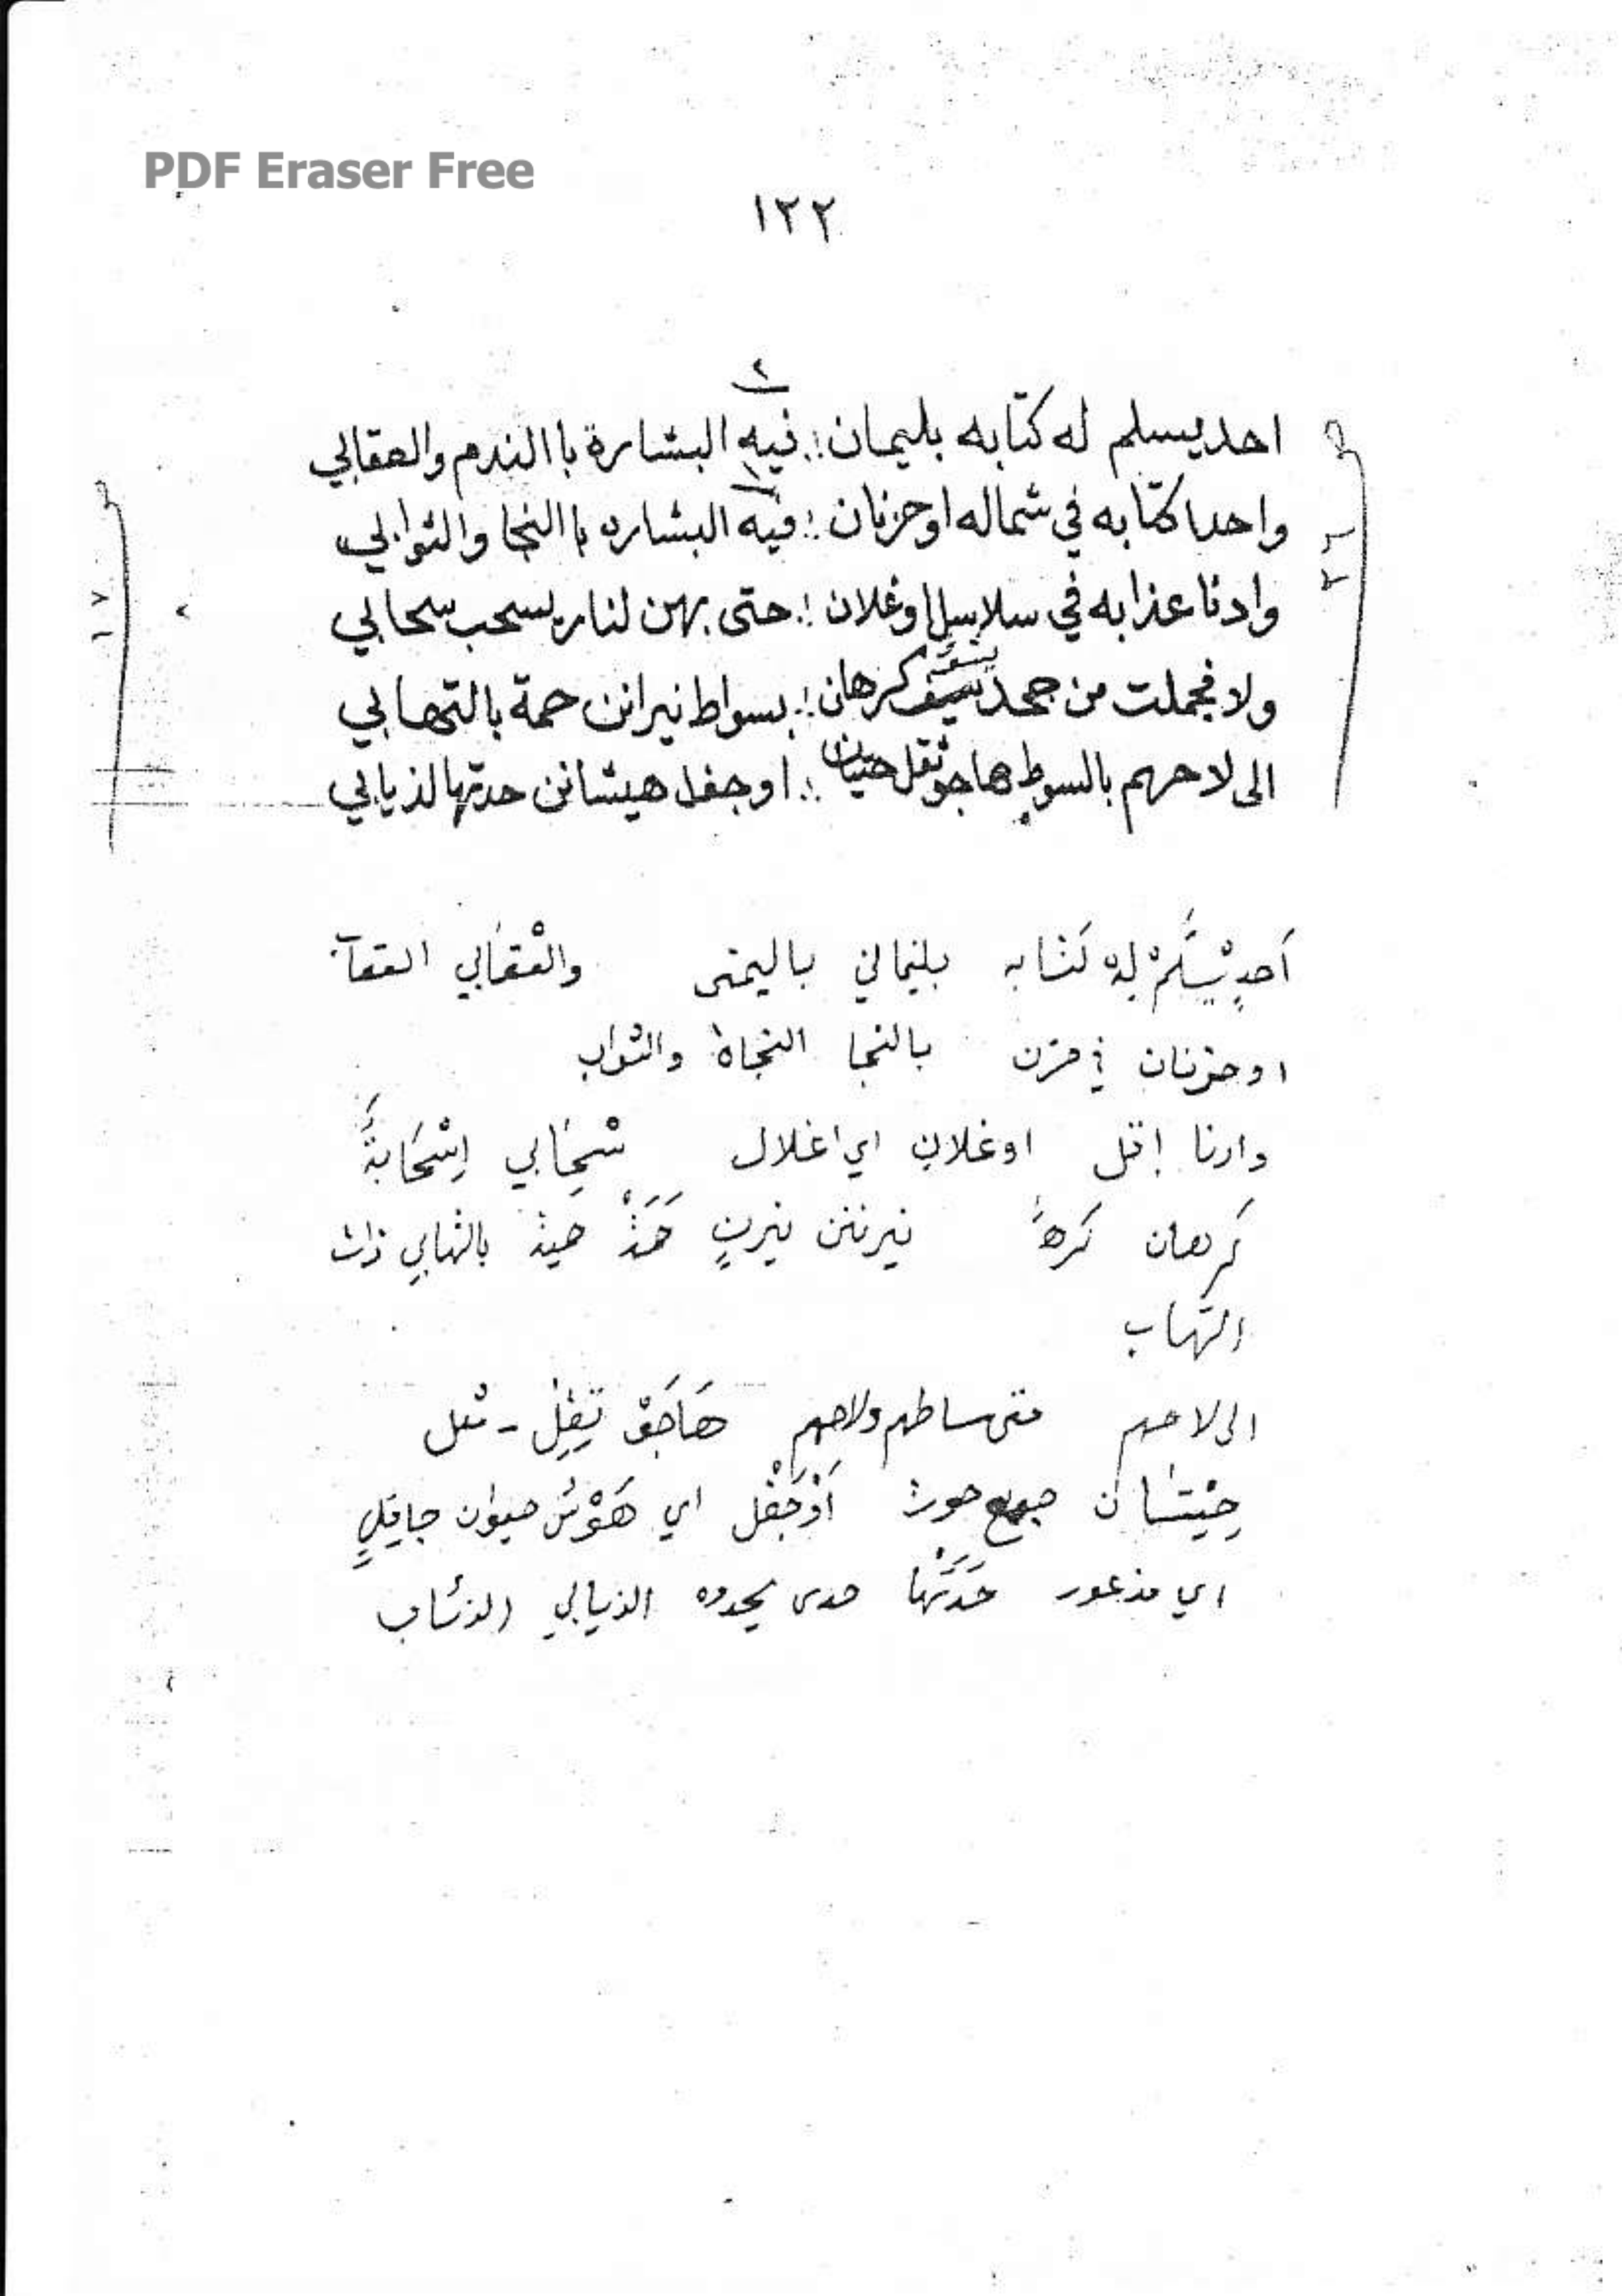 PDF Eraser Free
١٢٢
٢
احد يسلم له كتابه بليمان :. فيه البشارة باالندم والعقابي
١
واحدا كتابه في شماله اوحزنان :. فيه البشاره باالنجا والثوابي
وادنا عذابه في سلاسل اوغلان :. حتى بهن لنار يسحب سحابي
ولا فجملت من جحد كرهان :. بسواط نيرانن حمة بالتهابي
الى لاحهم بالسوط هاجو ثقل حيتان :. اوجفل هيشانن حدتها لذيابي
أحدٍ يسلم له كتابه بليماني باليمنى والعقابي العقآب
اوحزنان في حزن بالنجا النجاة والثواب
وادنا اقل اوغلان اي اغلال سحابي اسحابة
كرهان كرهاً نيرنن نيرنٍ حمة بالتهابي ذات
التهاب
الى لاحهم متى ساطهم ولاحهم هاجو ثقل - مثل
حيتان جمع حوت اوجفل اي هوش حيوان جافلٍ
اي مذعور حدتها حدى يحدوه الذيابي الذئاب